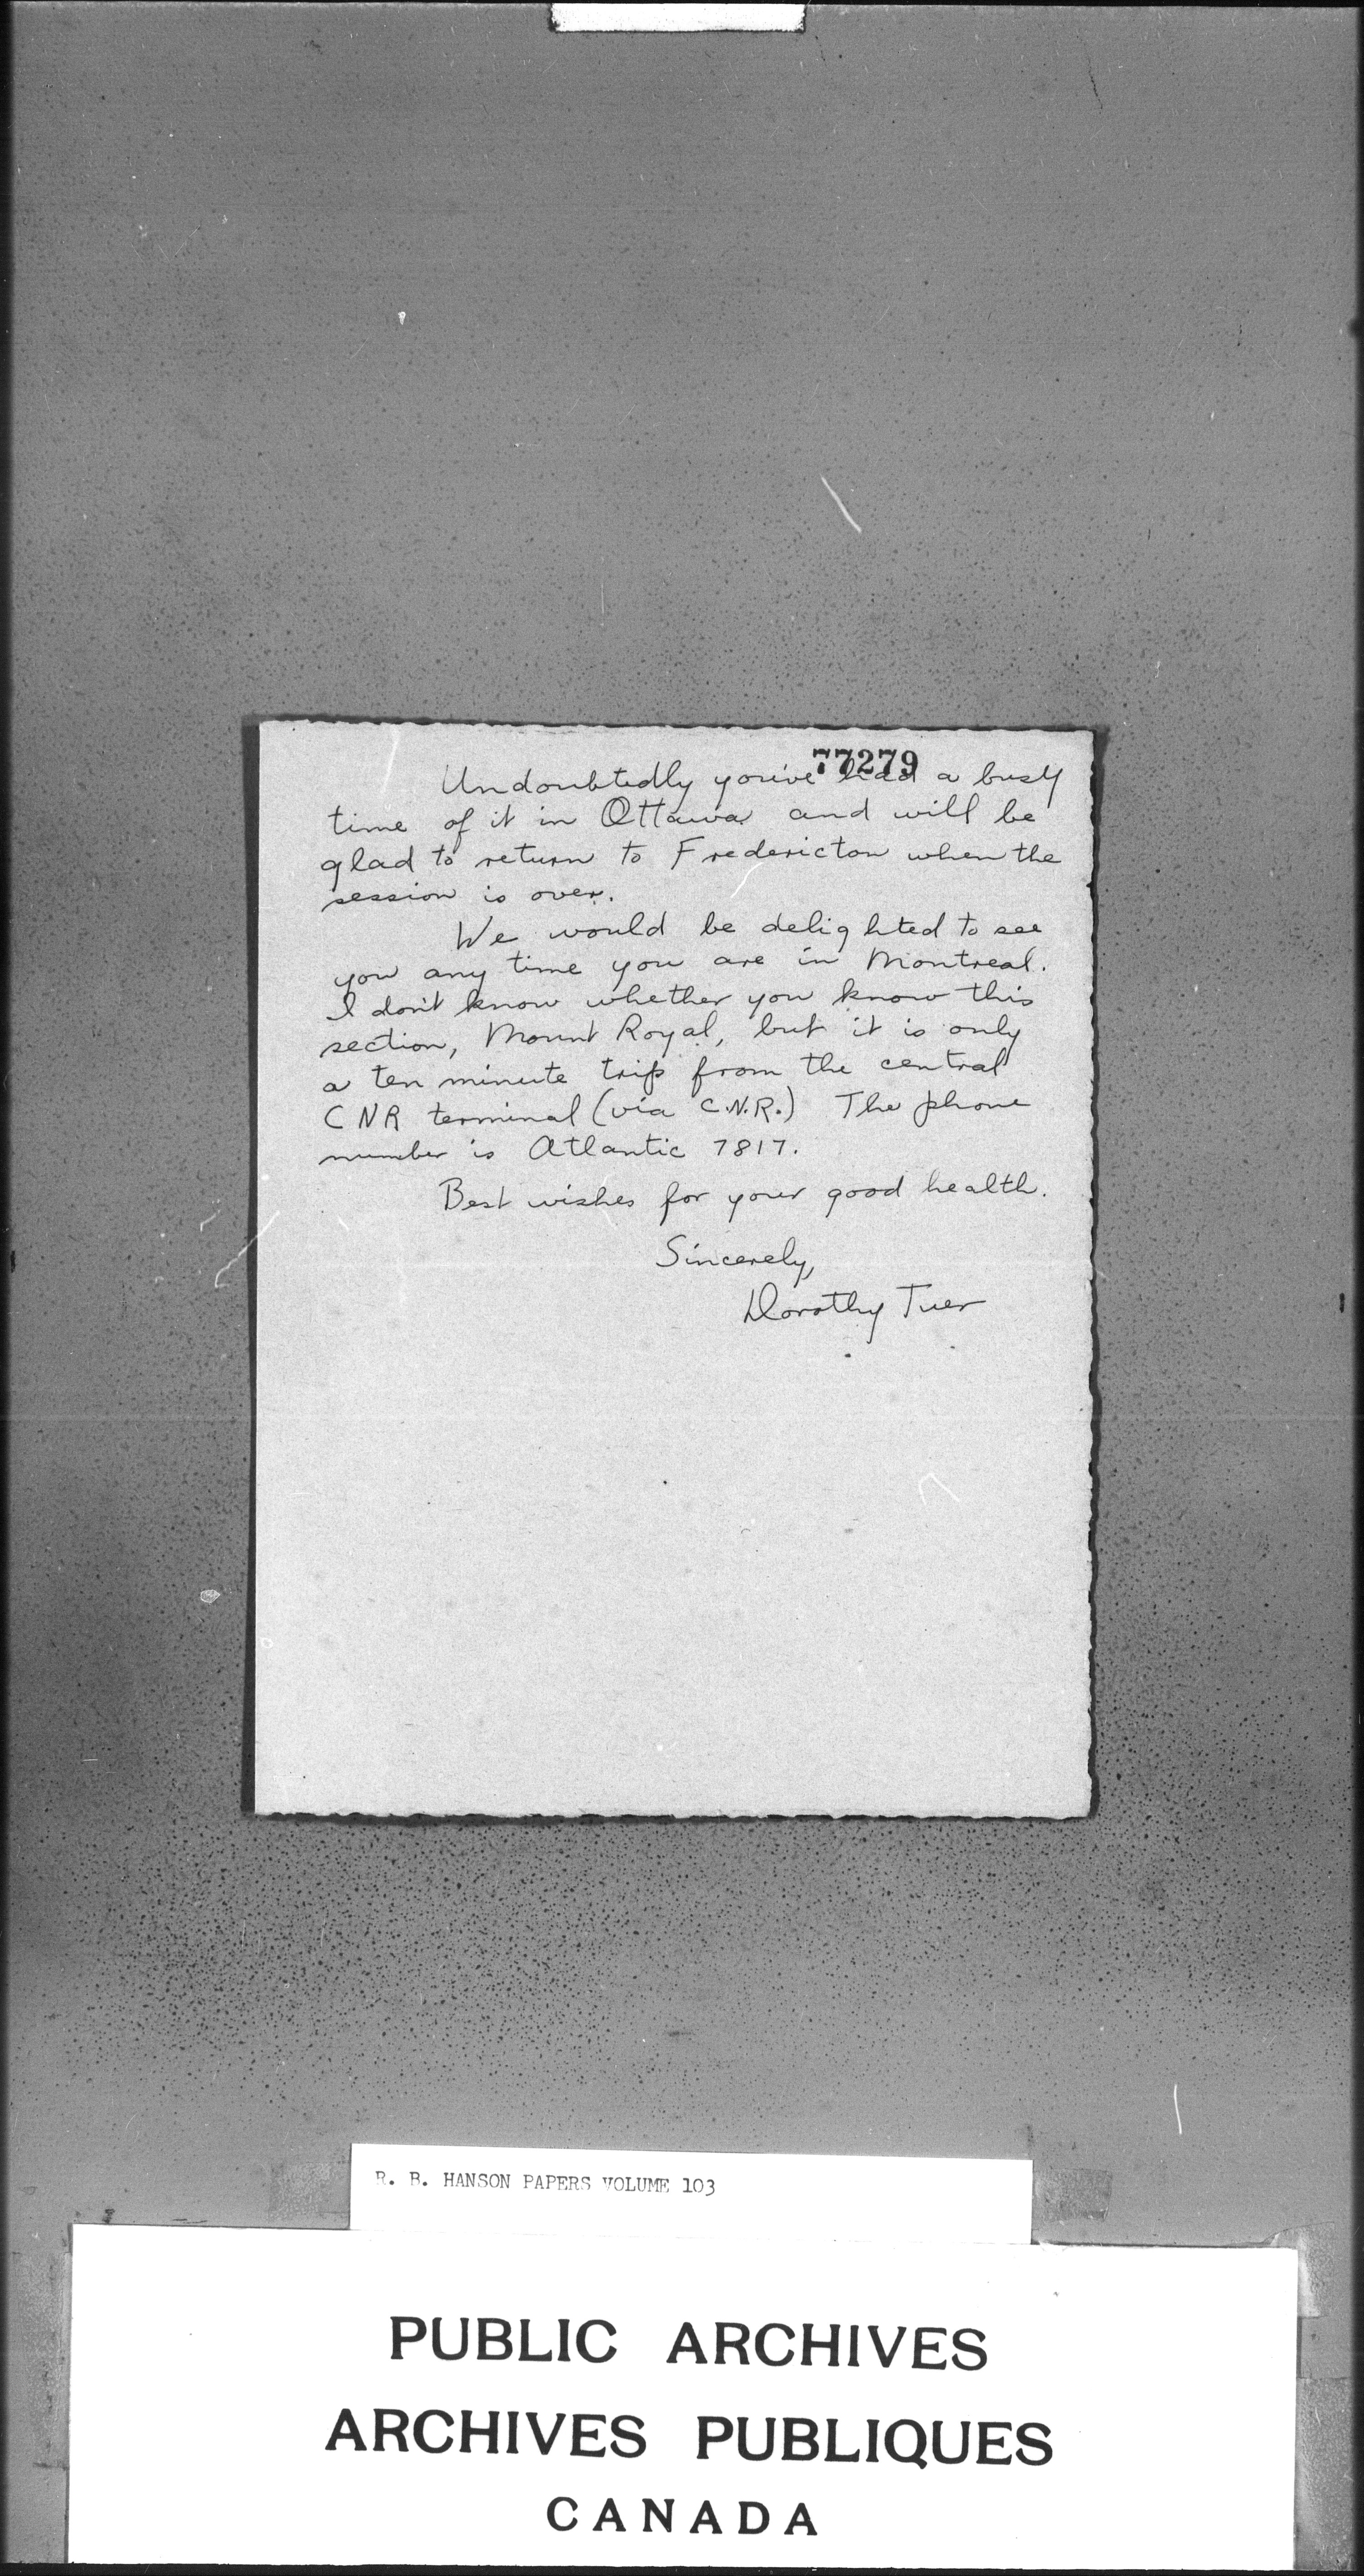 77279
Undoubtedly you've had a busy
time of it in Ottawa and will be
glad to return to Fredericton when the
session is over.
We would be delighted to see
you any time you are in Montreal.
I don't know whether you know this
section, Mount Royal, but it is only
a ten minute trip from the central
CNR terminal (via C.N.R.) The phone
number is Atlantic 7817.
Best wishes for your good health.
Sincerely,
Dorothy Tuer
R. B. HANSON PAPERS VOLUME 103
PUBLIC ARCHIVES
ARCHIVES PUBLIQUES
CANADA